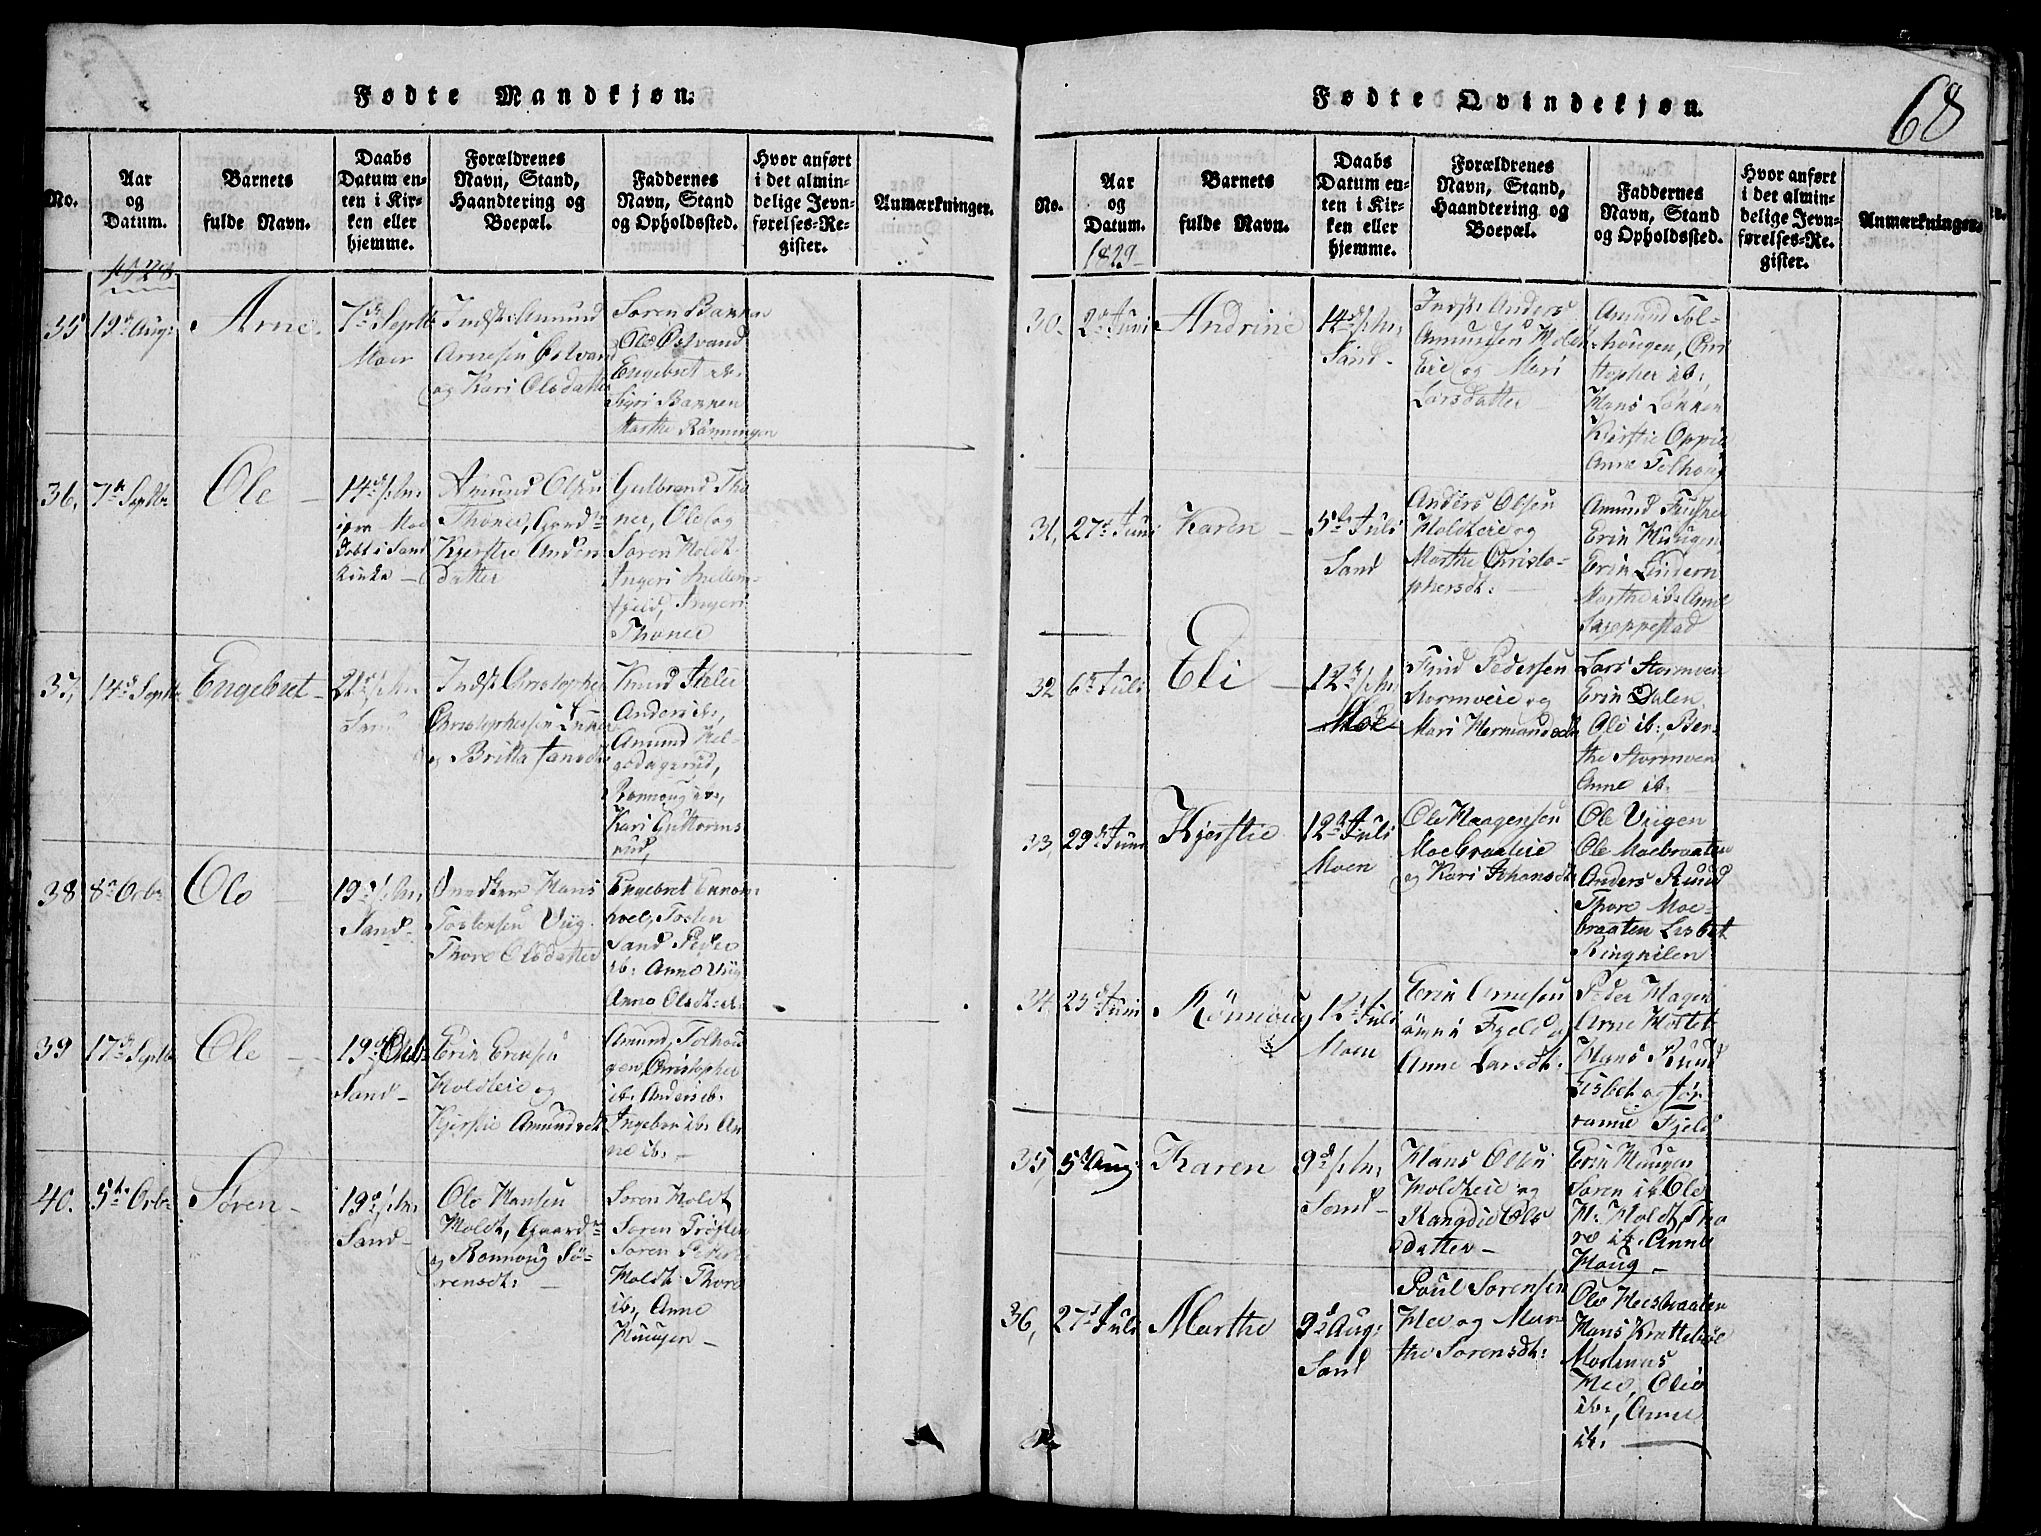 Fødte Mandkjøn:
No.
Aar
og
Datum.
Barnets
fulde Navn.
Daabs
Datum en-
ten i Kir-
ken eller
hjemme.
Forældrenes
Navn, Stand,
Haandtering og
Boepæl.
Faddernes
Navn, Stand
og Opholdssted.
Hvor anført
i det almin-
delige Jevn-
førelses-Re-
gister.
Anmærkninger.
1828
35
19de Aug:
Arne.
7de Septb
Moe
Indst: Amund
Arnesen Østvand
og Kari Olsdatter
Soren Bakken
Ole Østvand
Engebret ib:
Sigri Bakken
Marthe Rönningen
36,
7de Septb:
Ole
14de
Døbt i Sand
Kirke
Amund Olsen
Thoner, Gaard
Kjerstie Anders
datter
Gulbrand Tho
ner, Ole og
Soren Moldt
Ingeri Mellem-
fjeld, Ingeri
Thoner
37,
14de Septb
Engebret
21de
Sand
Indst Christopher
Christophersen
og Britta Jansdt
Knud
Anders ib:,
Amund Hel-
gedagsrud,
Ronnoug ib:,
Kari Guttorms
rud,
38
8de Octb:
Ole
19de
Sand
Hans
Tostensen Viig
Thore Olsdatter
Engebret
hoel, Tosten
Sand Peder
ib: Anne Viig
Anne Olsdt: ib:
39
17de Septb
Ole
19de Octb:
Sand
Erik Eriksen
Moldteie og
Kjerstie Amundsdt
Amund, Tolhou
gen, Christopher
ib: Anders ib:
Ingebor ib: An
ne ib:
40.
5te Octb:
Søren
19de
Sand
Ole Hansen
Moldt, Gaard
og Ronnoug Sö-
rensdt:
Soren Moldt
Soren Tröften
Soren Peders
Moldt Thore
ib:, Anne
Huugen
Fødte Qvindekjøn.
68
No.
Aar
og
Datum.
Barnets
fulde Navn.
Daabs
Datum en-
ten i Kir-
ken eller
hjemme.
Forældrenes
Navn, Stand,
Haandtering og
Boepæl.
Faddernes
Navn, Stand
og Opholdssted.
Hvor anført
i det almin-
delige Jevn-
førelses-Re-
gister.
Anmærkninger.
1829
30.
2de Juni
Andrine
14de
Sand
Indst: Anders
Amundsen Moldt
Eie og Mari
Larsdatter
Amund Tol-
hougen, Chri
stopher ib:,
Hans Løkken
Kjerstie Oppie
Anne Tolhoug
31,
27de Juni
Karen
5te Juli
Sand
Anders Olsen
Moldteie og
Marthe Christo-
phersdt:
Amund
Erik Huugen
Erik Lindern
Marthe ib: Anne
Skjeppestad
32
6te Juli
Eli
12te
Moe
Pedersen
Stormoeie og
Mari Hermansdt
Lars Stormoen
Erik Dalen
Ole ib: Ber-
the Stormoen
Anne ib:
33,
29de Juni
Kjerstie
12te Juli
Moen
Ole Haagensen
Moebraateie
og Kari Johansdt:
Ole Viigen
Ole Moebraaten
Anders Ruud
Thore Moe-
braaten Lisbet
34
25de Juni
Rönnoug
12te Juli
Moen
Erik Arnesen
Fjeld og
Anne Larsdt:
Peder Hagen
Arne
Hans Ruud
Lisbet og Jör-
ranne Fjeld
35,
5te Aug:
Karen
9de
Sand
Hans Olsen
Moldteie og
Rangdie Ols
datter
Erik Huugen
Soren ib: Ole
H: Moldt, Tho
re ib. Anne
Houg
36,
27de Juli
Marthe
9de Aug:
Sand
Poul Sorensen
Mee og Mar
the Sorensdt:
Ole Meebraaten
Hans Krattebøl
Mee, Olea
ib:, Anne
ib.